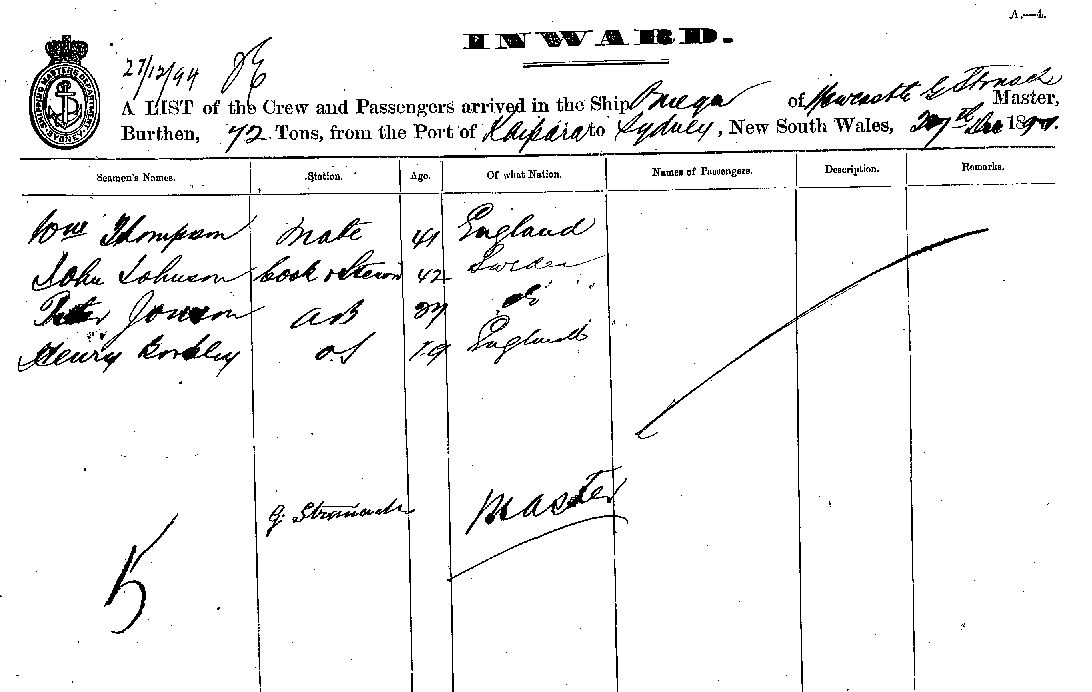 A.—4.
INWARD.
27/12/94
A LIST of the Crew and Passengers arrived in the Ship Omega of Newcastle G Stronach Master,
Burthen, 72 Tons, from the Port of Kaipara to Sydney, New South Wales, 27th Dec 1894.
Seamen's Names. Station. Age. Of what Nation. Names of Passengers. Description. Remarks.
Wm Thompson Mate 41 England
John Johnson Cook & Stew 42 Sweden
Peter Jonson AB 37 do
Henry OS 19 England
G. Stronach Master
5